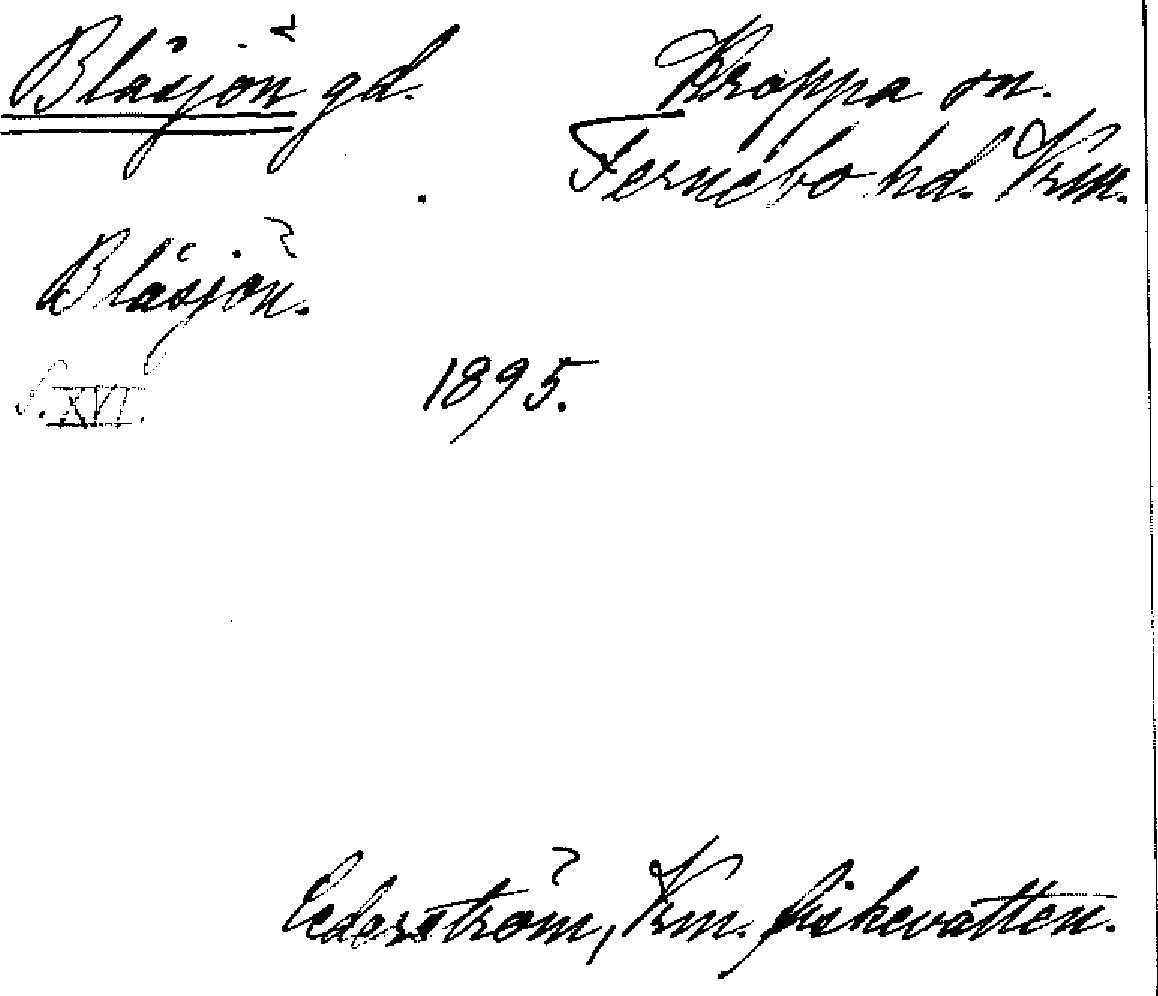 Blåsjön gd. Kroppa sn.
Fernebo hd. Vrm.
Blåsjön.
S. XVI. 1895.
Cederström, Vrm. fiskevatten.